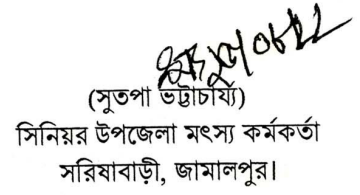 (সুতপা ভট্টাচার্য্য)
সিনিয়র উপজেলা মৎস্য কর্মকর্তা
সরিষাবাড়ী, জামালপুর।